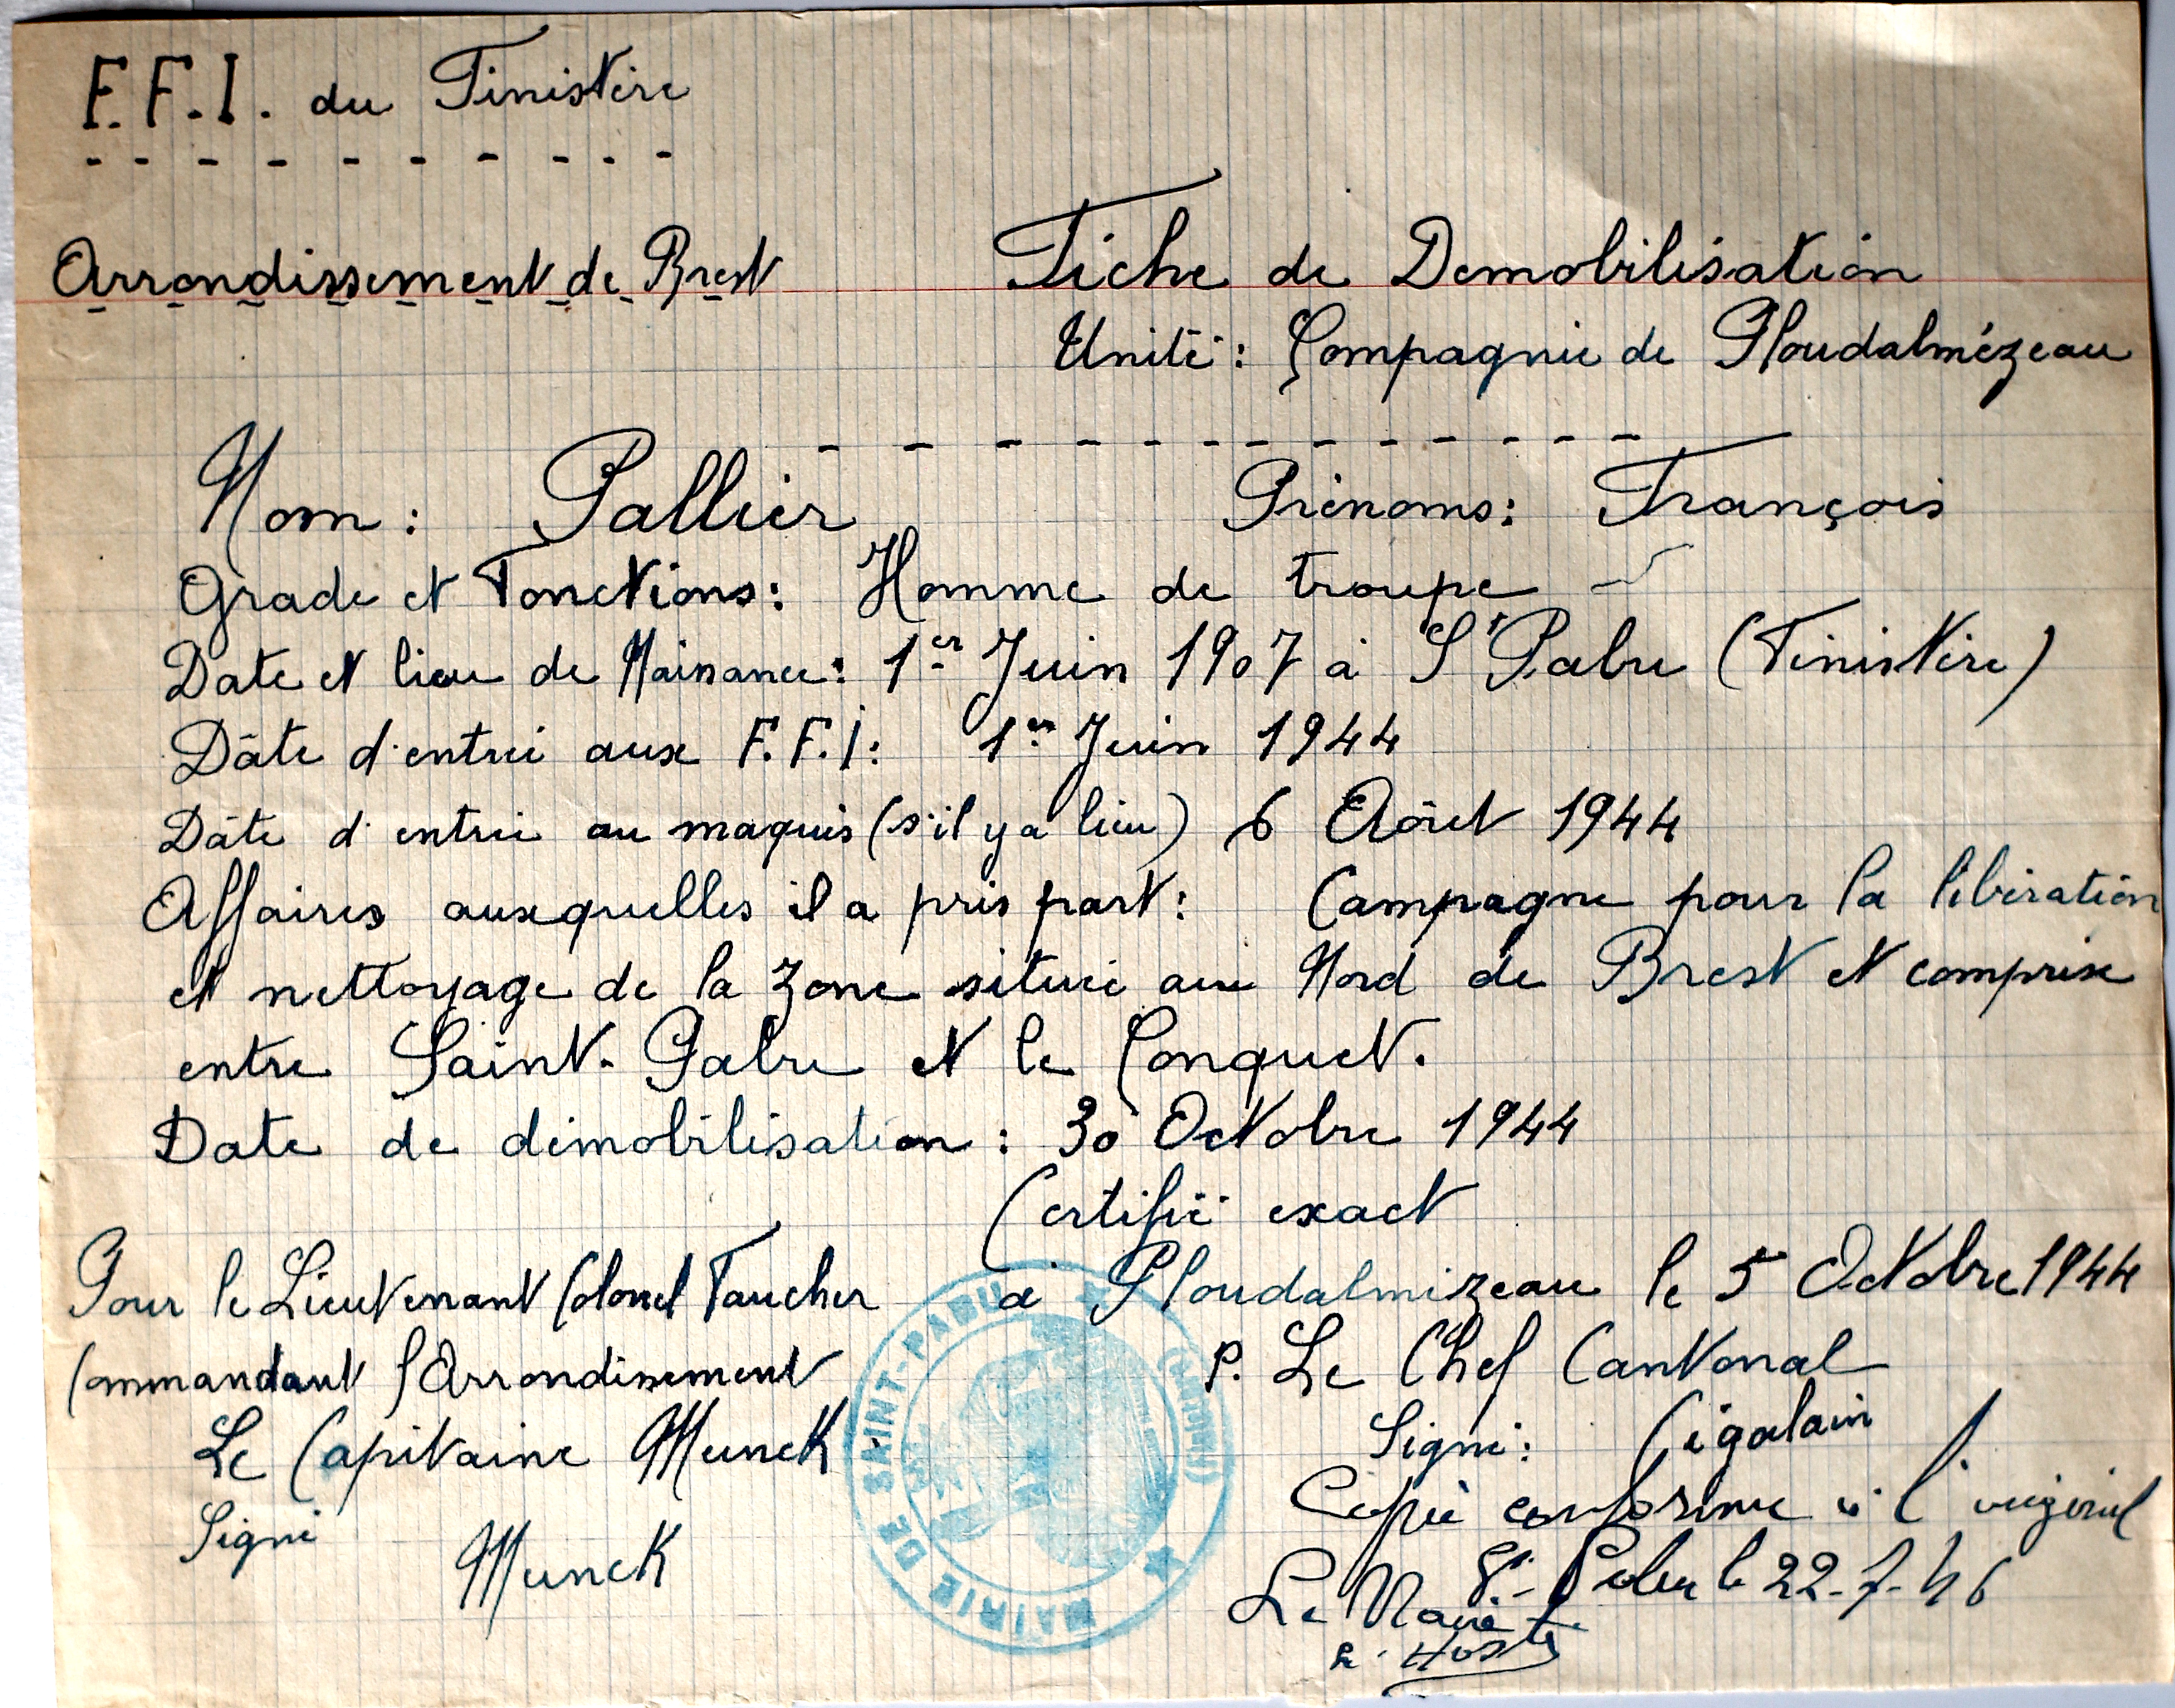 F.F.I. du Finistère
Arrondissement de Brest
Fiche de Demobilisation
Unité: Compagnie de Ploudalmézeau
Nom: Pallier Prénoms: François
Grade et Fonctions: Homme de troupe
Date et lieu de Naissance: 1er Juin 1907 à St Pabu (Finistère)
Dâte d'entrée aux F.F.I: 1er Juin 1944
Dâte d'entrée au maquis (s'il y a lieu) 6 Août 1944
Affaires auxquelles il a pris part: Campagne pour la libération
et nettoyage de la zone située au Nord de Brest et comprise
entre Saint-Pabu et le Conquet.
Date de démobilisation: 30 Octobre 1944
Certifié exact
à Ploudalmézeau le 5 Octobre 1944
Pour le Lieutenant Colonel Faucher
Commandant l'Arrondissement
Le Capitaine Munck
Signé
Munck
P. Le Chef Cantonal
Signé: Cigolain
Copie conforme à l'original
St-Pabu le 22-7-46
Le Maire
MAIRIE DE SAINT-PABU